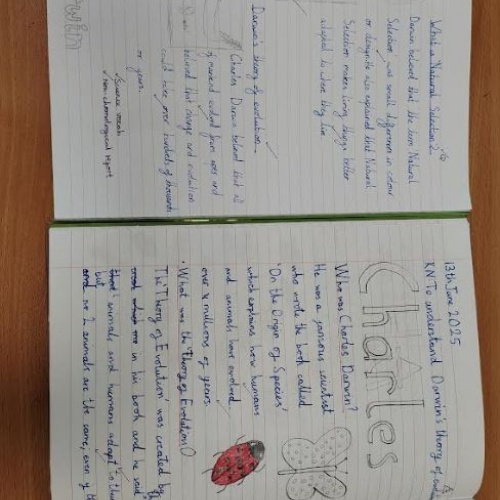 13th June 2025
KN To understand Darwin's theory of
Charles
Who was Charles Darwin?
He was a famous scientist
who wrote the book called
'On the Origin of Species'
which explains how humans
and animals have evolved
over millions of years.
What was the Theory of Evolution
The Theory of Evolution was created by
in his book and he said
but animals and humans adapt to
no 2 animals are the same, even
What is Natural Selection?
Darwin believed that the term Natural
Selection was small differences in colour
or design he also explained that Natural
Selection makes living things better
adapted to where they live
Darwin's theory of evolution
Charles Darwin believed that all
of mankind evolved from apes and
believed that change and evolution
could take over hundreds of thousands
of years.
Science vocab
non-chronological report